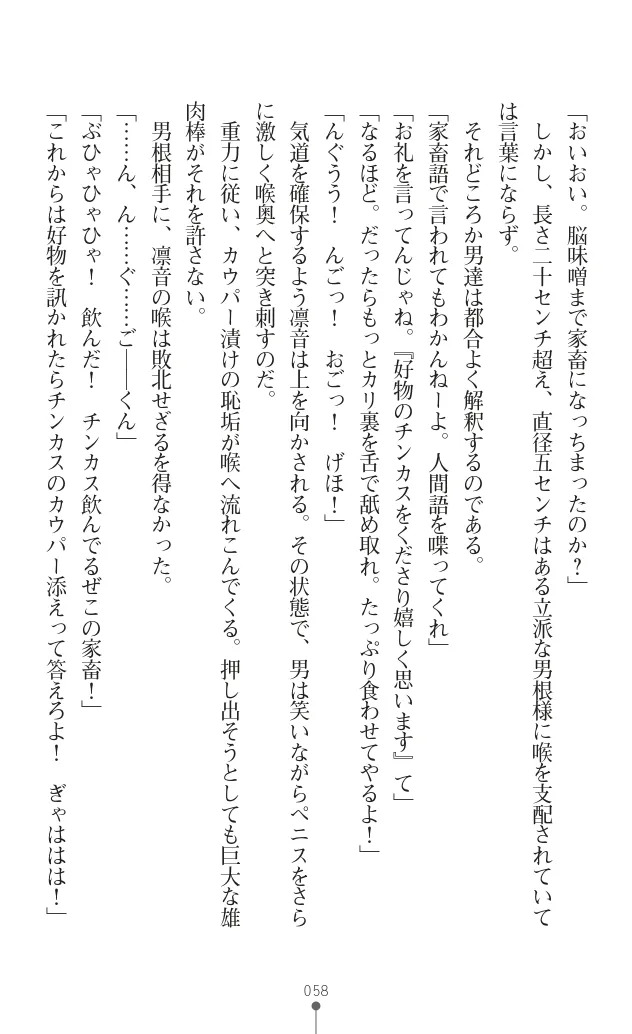 「おいおい。脳味噌まで家畜になっちまったのか？」
しかし、長さ二十センチ超え、直径五センチはある立派な男根様に喉を支配されていて
は言葉にならず。
それどころか男達は都合よく解釈するのである。
「家畜語で言われてもわかんねーよ。人間語を喋ってくれ」
「お礼を言ってんじゃね。『好物のチンカスをくださり嬉しく思います』て」
「なるほど。だったらもっとカリ裏を舌で舐め取れ。たっぷり食わせてやるよ！」
「んぐうう！　んごっ！　おごっ！　げほ！」
気道を確保するよう凛音は上を向かされる。その状態で、男は笑いながらペニスをさら
に激しく喉奥へと突き刺すのだ。
重力に従い、カウパー漬けの恥垢が喉へ流れこんでくる。押し出そうとしても巨大な雄
肉棒がそれを許さない。
男根相手に、凛音の喉は敗北せざるを得なかった。
「……ん、ん……ぐ……ご――くん」
「ぶひゃひゃひゃ！　飲んだ！　チンカス飲んでるぜこの家畜！」
「これからは好物を訊かれたらチンカスのカウパー添えって答えろよ！　ぎゃははは！」
058